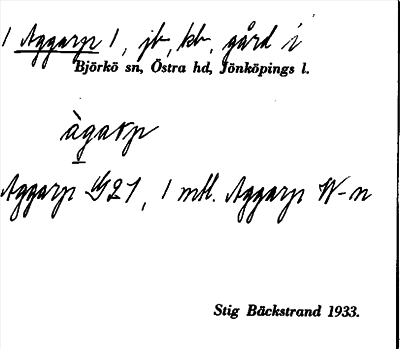 1 Aggarp 1, jb, kb, gård i
Björkö sn, Östra hd, Jönköpings l.
àgarp
Aggarp 21, 1 mtl. Aggarp W-n
Stig Bäckstrand 1933.